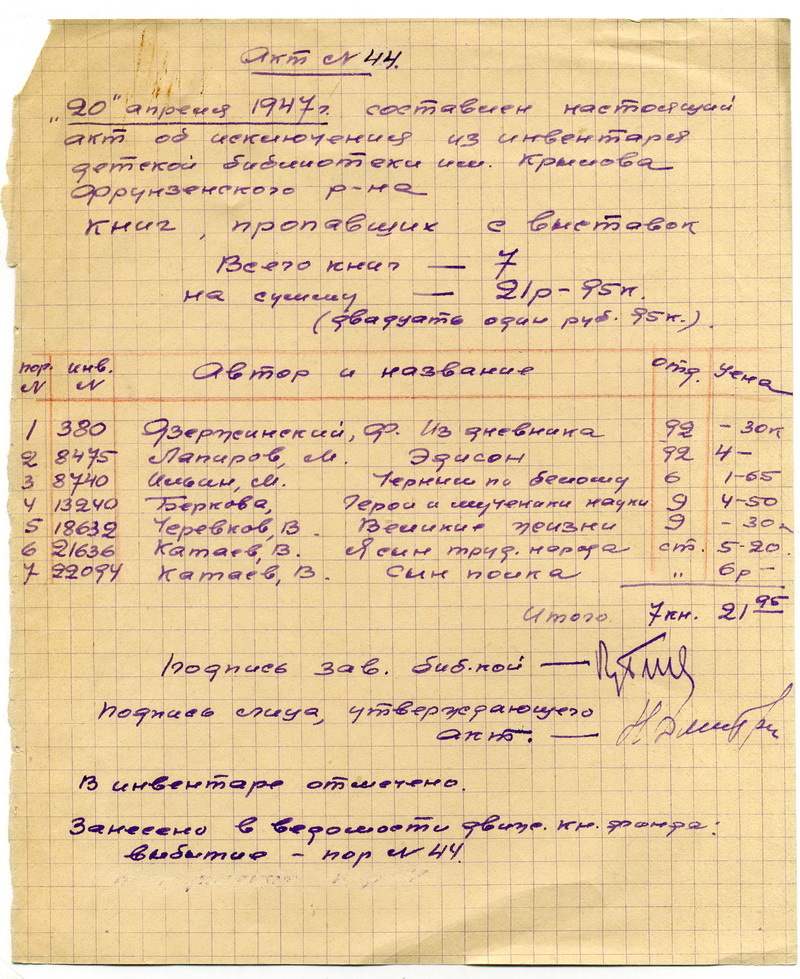 Акт № 44.
"20" апреля 1947 г. составлен настоящий
акт об исключения из инвентаря
детской библиотеки им. Крылова
Фрунзенского р-на
книг, пропавших с выставок
Всего книг — 7
на сумму — 21р-95к.
(двадцать один руб. 95к.).
пор. N инв. N Автор и название отд. Цена
1 380 Дзержинский, Ф. Из дневника 92 - 30к
2 8475 Лапиров, М. Эдисон 92 4-
3 8740 Ильин, М. Черным по белому 6 1-65
4 13240 Беркова, Герои и мученики науки 9 4-50
5 18632 Черевков, В. Великие жизни 9 - 30к
6 21636 Катаев, В. Я сын труд. народа ст. 5-20.
7 22094 Катаев, В. Сын полка " 6р-
Итого 7 кн. 21 95
Подпись зав. биб-кой —
Подпись лица, утверждающего
акт. —
В инвентаре отмечено.
Занесено в ведомости движ. кн. фонда:
выбытие - пор № 44.